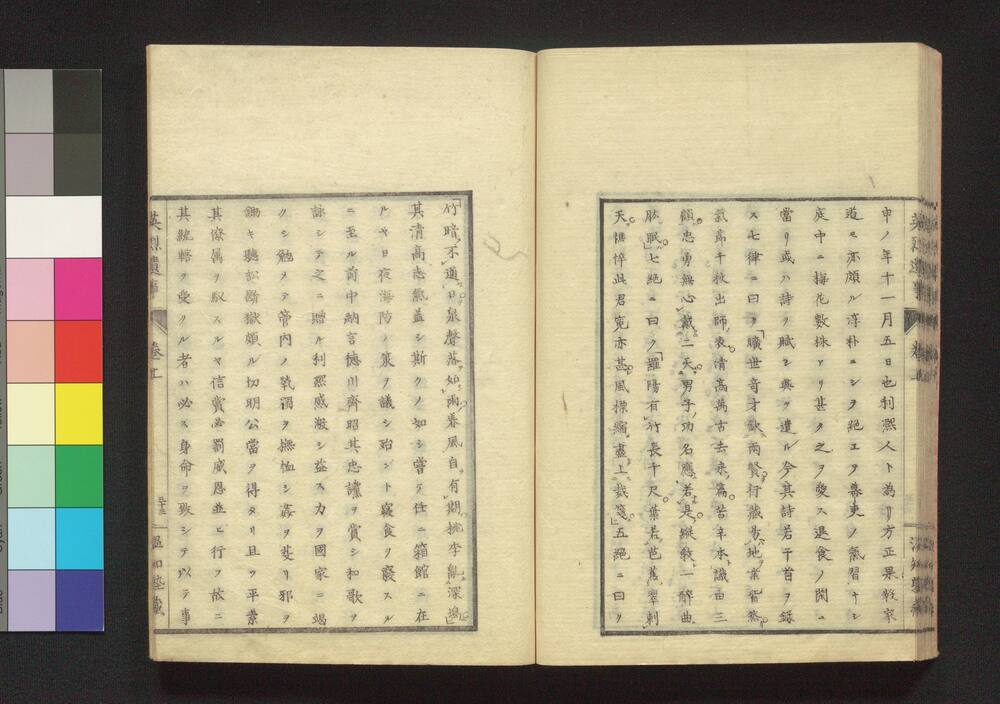 申ノ年十一月五日也利熙人ト為リ方正果毅家
道モ亦頗ル淳朴ニシヲ絕エヲ幕吏ノ氣習ナシ
庭中ニ梅花數株アリ甚タ之ヲ愛ス退食ノ閒ニ
當リ或ハ詩ヲ賦シ興ヲ遣ル今其詩若干首ヲ錄
ス七律ニ曰ク「曠世奇才歎兩賢行藏易地業皆然
氣節千秋出師表清高萬古去來篇苦辛本識由三
顧忠勇無心戴二天男子功名應若是縱敎一醉曲
肱眠」七絕ニ曰ク「羅陽有竹長千尺葉若芭蕉翠刺
天惆悵此君寬亦甚風標縮盡上裁箋」五絕ニ曰ク
英烈遺事 卷上
「竹暗不通日泉聲落如雨春風自有期桃李亂深塢」
其清高志氣蓋シ斯クノ如シ嘗テ任ニ箱館ニ在
ルヤ日夜海防ノ策ヲ議シ殆ント寢食ヲ廢スル
ニ至ル前中納言德川齊昭其忠讜ヲ賞シ和歌ヲ
詠シテ之ニ贈ル利熙感激シ益ス力ヲ國家ニ竭
クシ勉メテ管內ノ煢獨ヲ撫恤シ蠹ヲ芟リ邪ヲ
鋤キ聽訟斷獄頗ル切明公當ヲ得タリ且ツ平素
其僚屬ヲ馭スルヤ信賞必罰威恩並ヒ行フ故ニ
其統轄ヲ受クル者ハ必ス身命ヲ致シテ以テ事